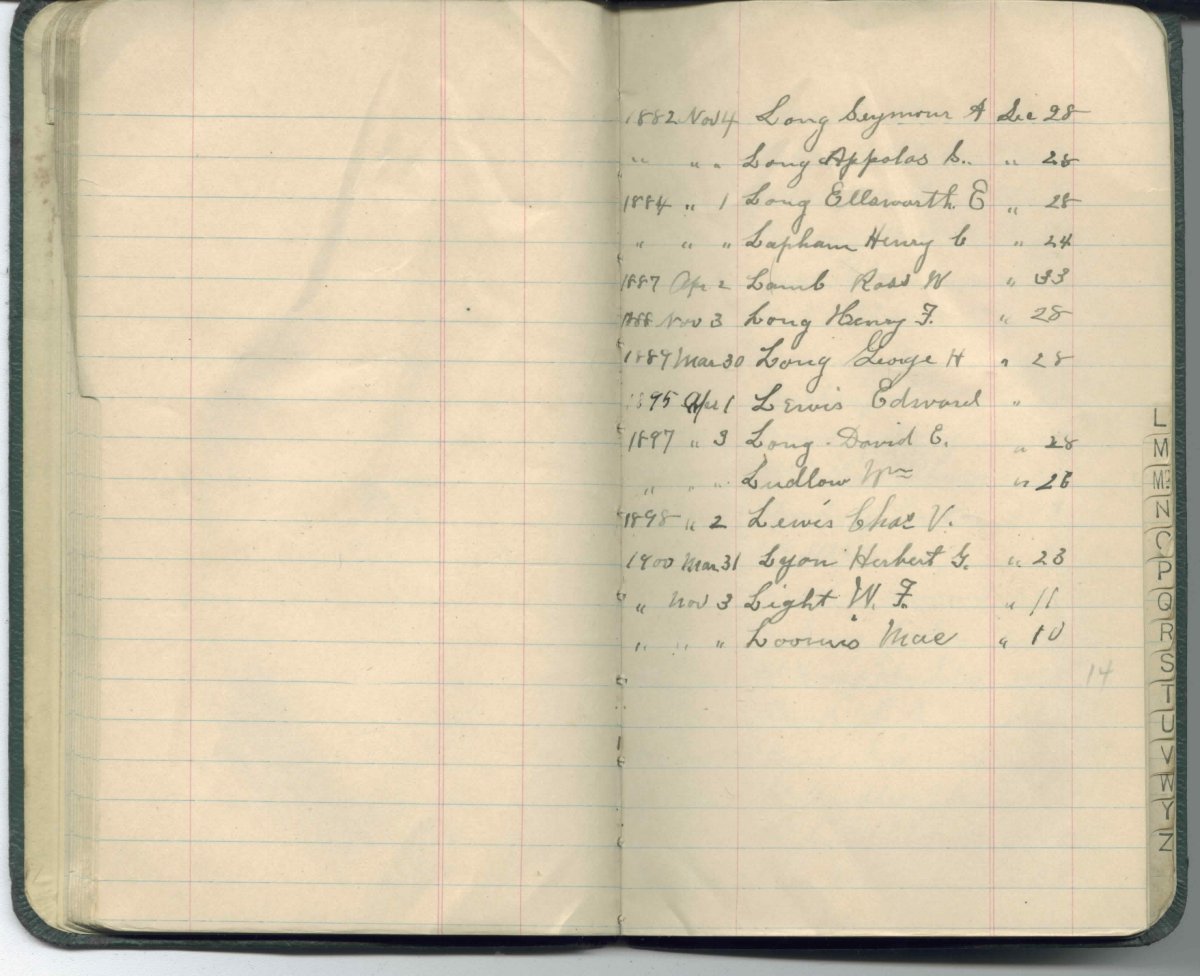 1882 Nov 4 Long Seymour A Sec 28
" " " Long Appolas S. " 28
1884 " 1 Long Ellsworth E " 28
" " " Lapham Henry C " 24
1887 Apr 2 Lamb Ross W " 33
1888 Nov 3 Long Henry F. " 28
1889 Mar 30 Long George H " 28
1895 Apr 1 Lewis Edward "
1897 " 3 Long David E. " 28
" " " Ludlow Wm " 26
1898 " 2 Lewis Chas V.
1900 Mar 31 Lyon Herbert G. " 23
" Nov 3 Light W. F. " 11
" " " Loomis Mac " 10
14
L
M
Mc
N
O
P
Q
R
S
T
U
V
W
Y
Z